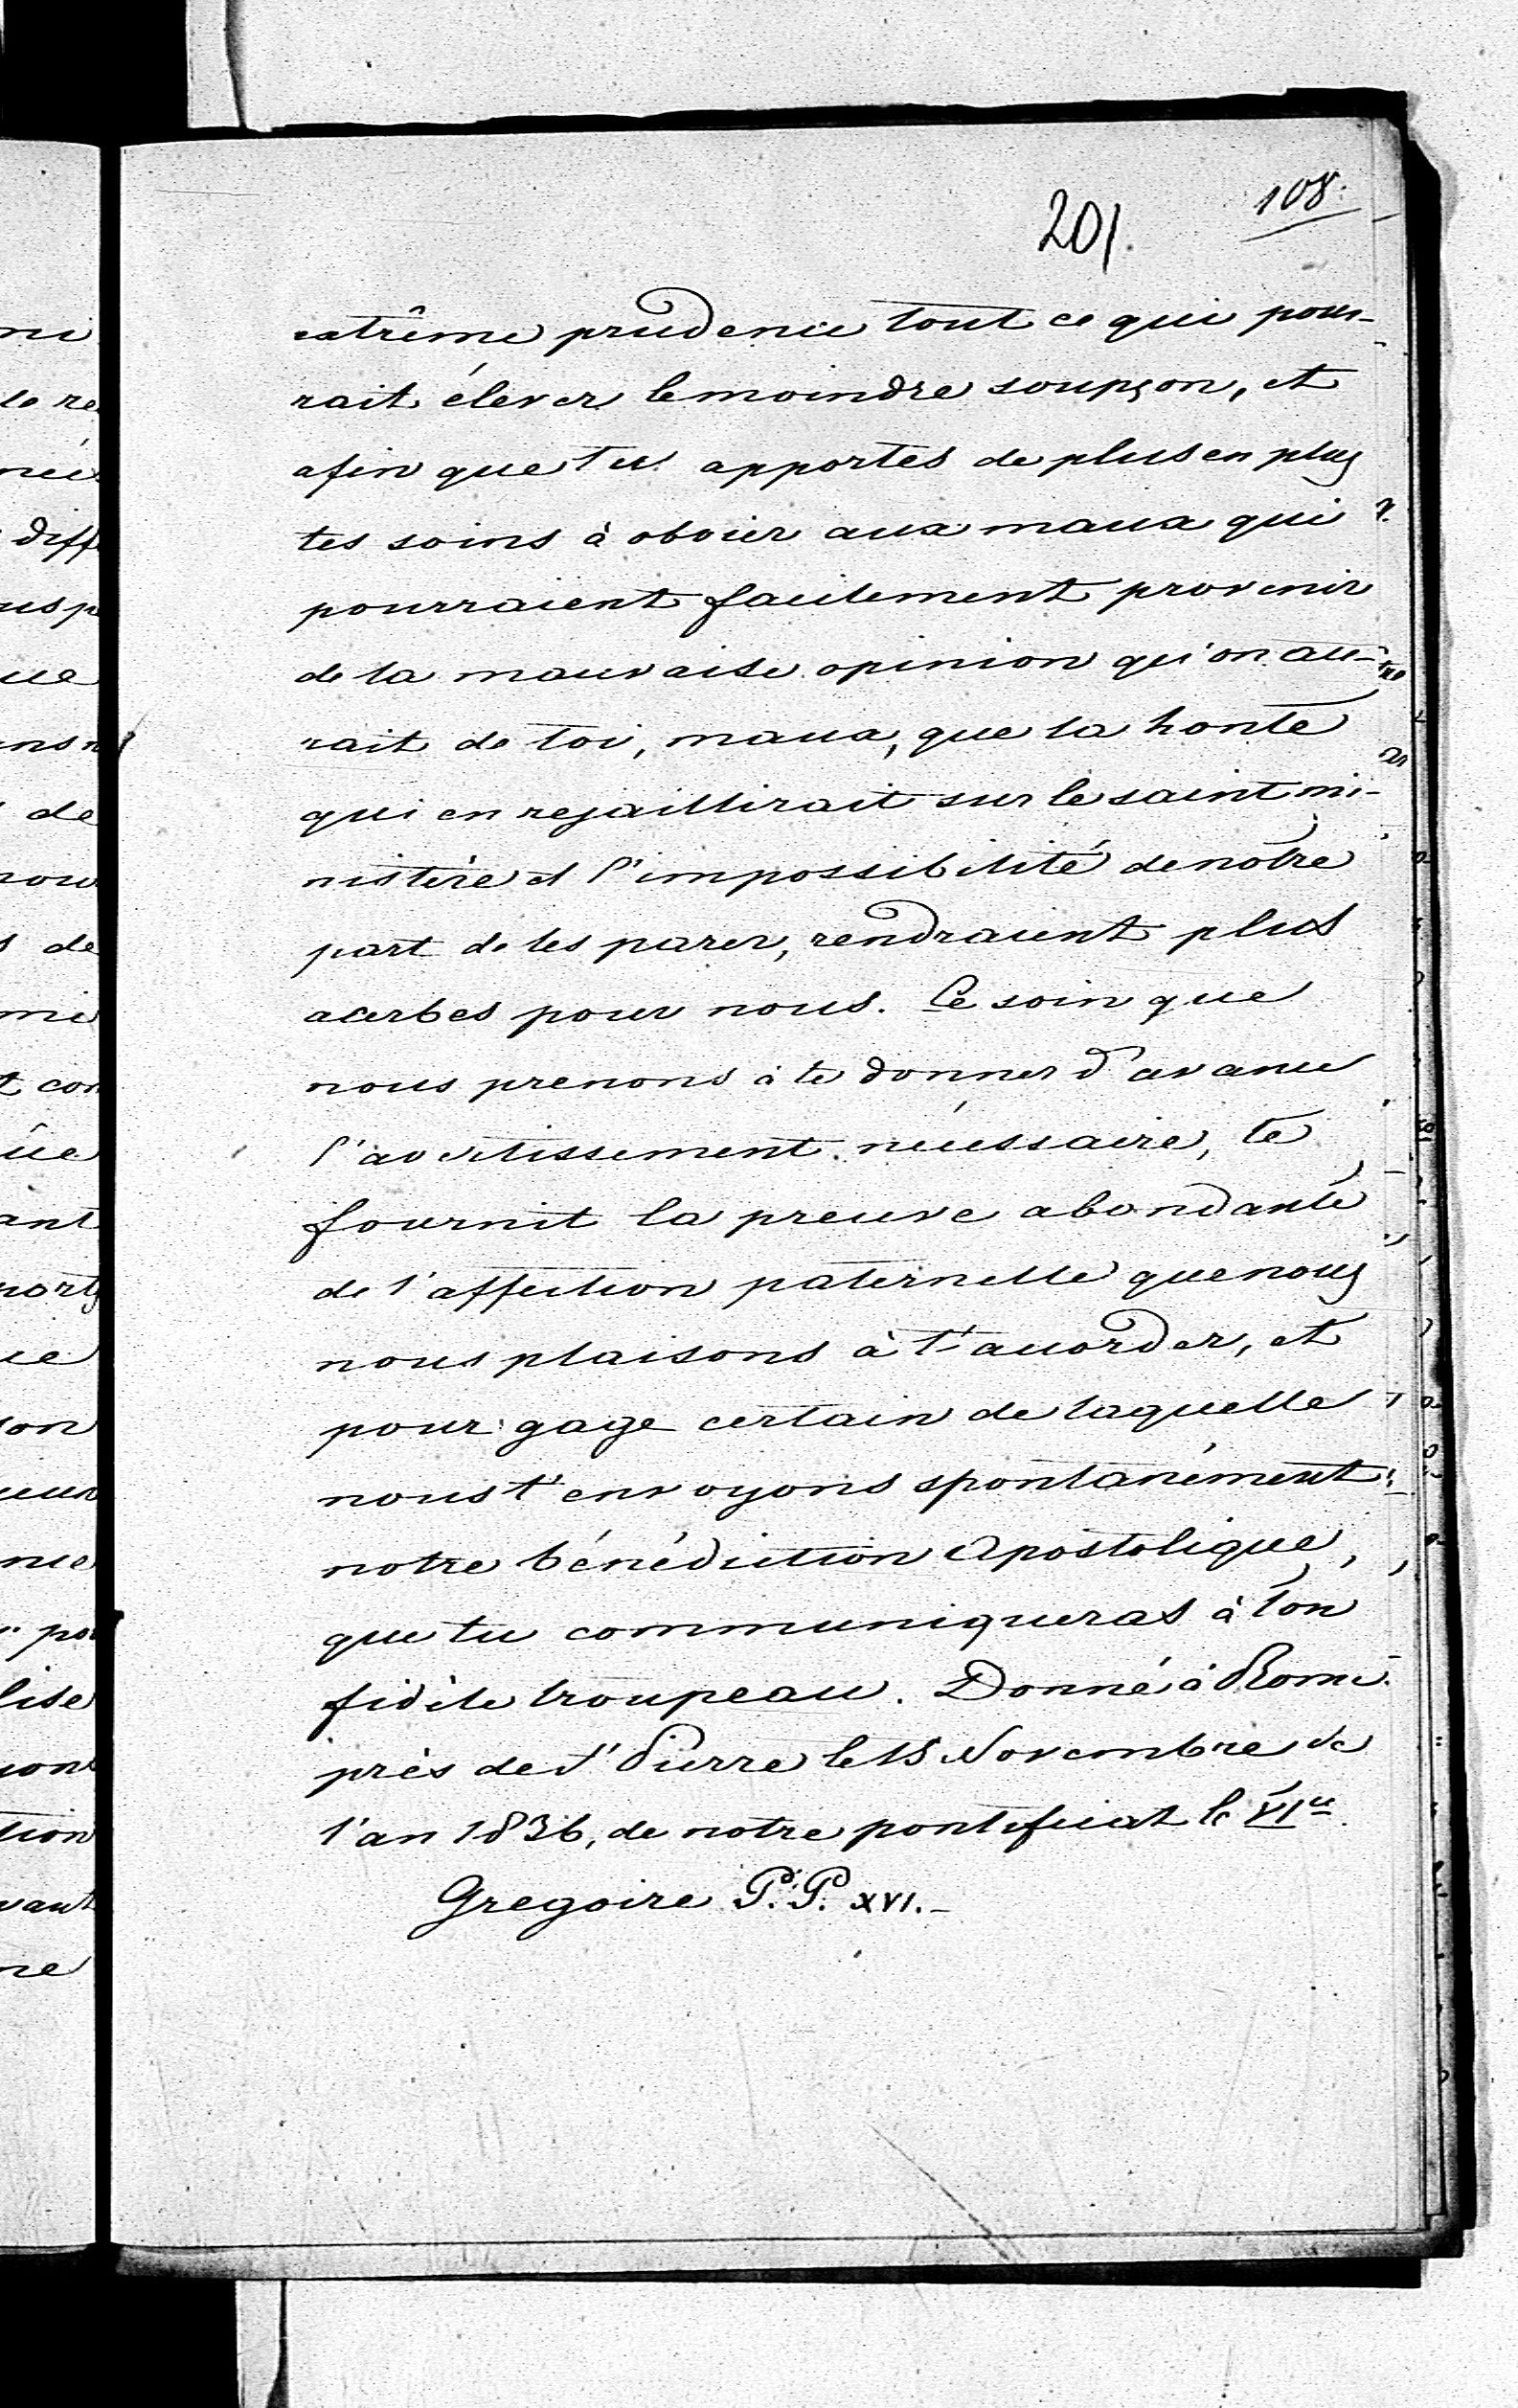 108.
201.
extrême prudence tout ce qui pour-
rait élever le moindre soupçon, et
afin que tu apportes de plus en plus
tes soins à obvier aux maux qui
pourraient facilement provenir
de la mauvaise opinion qu'on au-
rait de toi, maux, que la honte
qui en rejaillirait sur le saint mi-
nistère et l'impossibilité de nôtre
part de les parer, rendraient plus
acerbes pour nous. Le soin que
nous prenons à te donner d'avance
l'avertissement nécessaire, te
fournit la preuve abondante
de l'affection paternelle que nous
nous plaisons à t'accorder, et
pour gage certain de laquelle
nous t'envoyons spontanément
notre bénédiction Apostolique,
que tu communiqueras à ton
fidèle troupeau. Donné à Rome
près de St Pierre le 15 Novembre de
l'an 1836, de notre pontificat le VIme.
Gregoire P. P. XVI.-